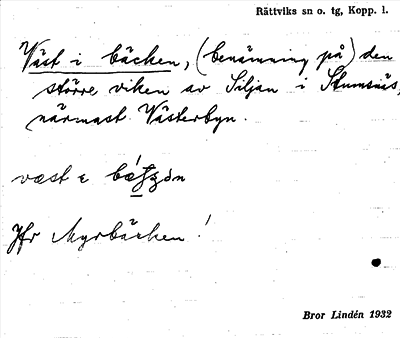 Rättviks sn o. tg, Kopp. l.
Väst i bäcken, (benämning på) den
större viken av Siljan i Stumsnäs,
närmast Västerbyn.
væst ɪ
Jfr Myrbäcken!
Bror Lindén 1932